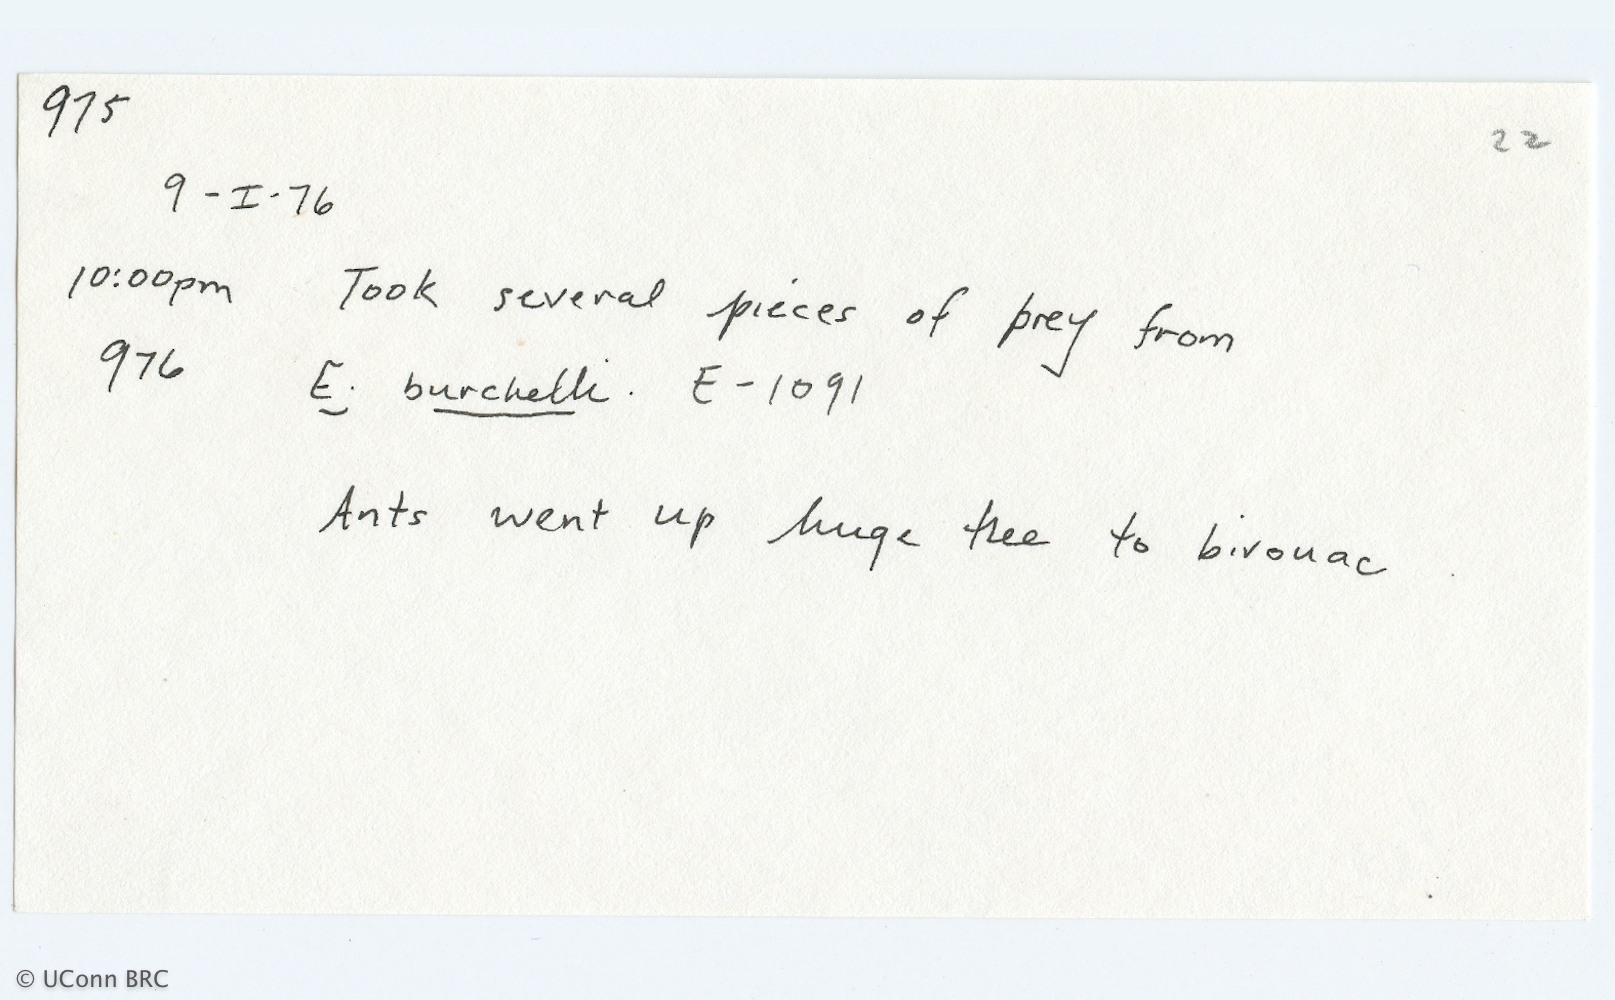 975
22
9-I-76
10:00pm Took several pieces of prey from
976 E. burchelli. E-1091
Ants went up huge tree to bivouac.
© UConn BRC